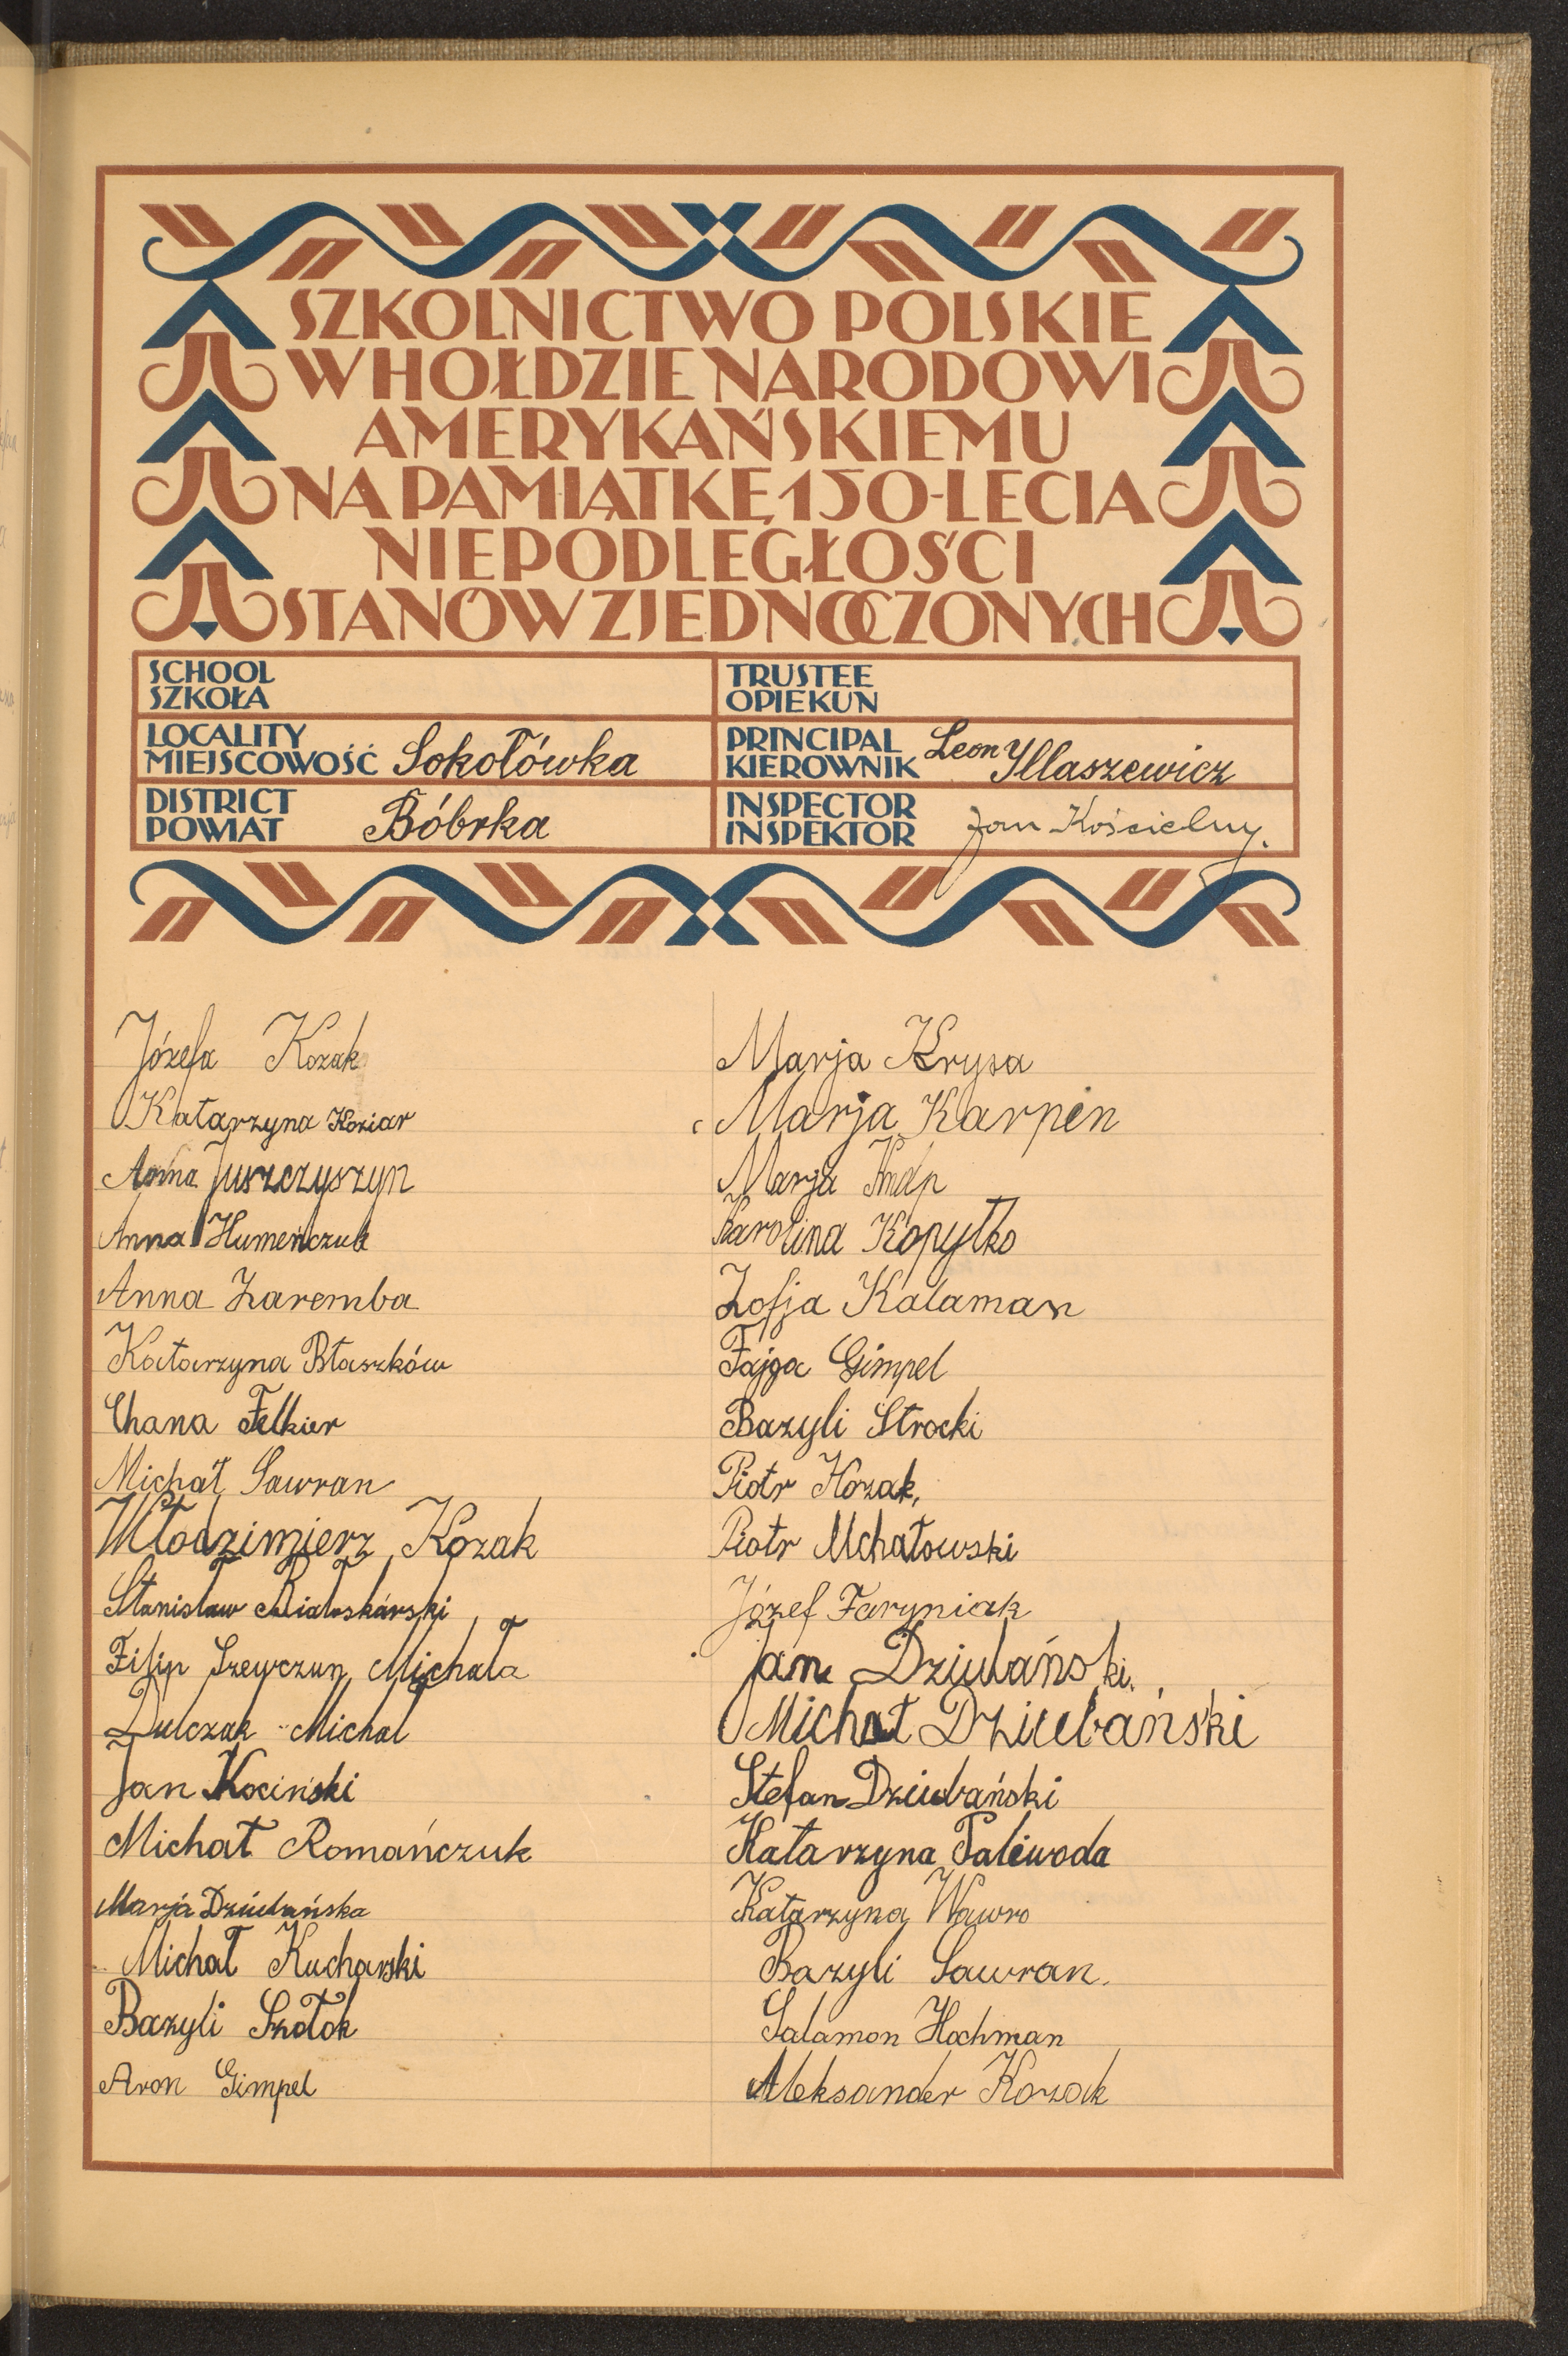 SZKOLNICTWO POLSKIE
W HOŁDZIE NARODOWI
AMERYKAŃSKIEMU
NA PAMIĄTKĘ 150-LECIA
NIEPODLEGŁOŚCI
STANÓW ZJEDNOCZONYCH
SCHOOL
SZKOŁA
TRUSTEE
OPIEKUN
LOCALITY
MIEJSCOWOŚĆ Sokołówka
PRINCIPAL
KIEROWNIK Leon Yllaszewicz
DISTRICT
POWIAT Bóbrka
INSPECTOR
INSPEKTOR Jan Kościelny.
Józefa Kozak
Katarzyna Koziar
Anna Juszczyszyn
Anna Humeńczuk
Anna Zaremba
Katarzyna Błaszków
Chana Felker
Michał Sawran
Włodzimierz Kozak
Stanisław Białoskórski
Filip Szewczun, Michała
Dulczak Michal
Jan Kociński
Michał Romańczuk
Marja Dziubańska
Michał Kucharski
Bazyli Szołok
Aron Gimpel
Marja Krysa
Marja Karpin
Marja
Karolina Kopyłko
Zofja Kałaman
Fajga Gimpel
Bazyli Strocki
Piotr Kozak,
Piotr Mchałowski
Józef Faryniak
Jan Dziubański.
Michał Dziubański
Stefan Dziubański
Katarzyna Paliwoda
Katarzyna Wawro
Bazyli Sawran.
Salamon Hochman
Aleksander Kozak